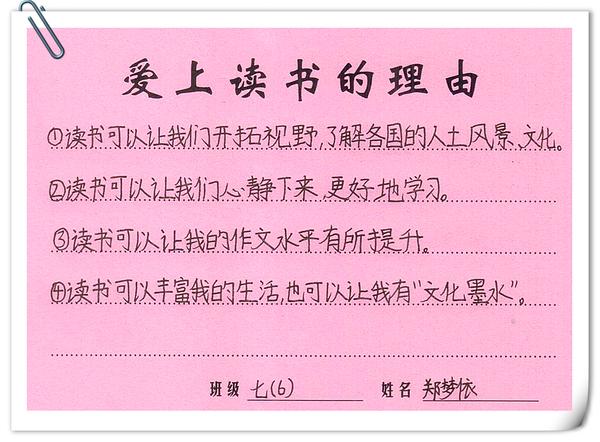 爱上读书的理由
①读书可以让我们开拓视野,了解各国的人土风景、文化。
②读书可以让我们心静下来,更好地学习。
③读书可以让我的作文水平有所提升。
④读书可以丰富我的生活,也可以让我有“文化墨水”。
班级 七(6) 姓名 郑梦依